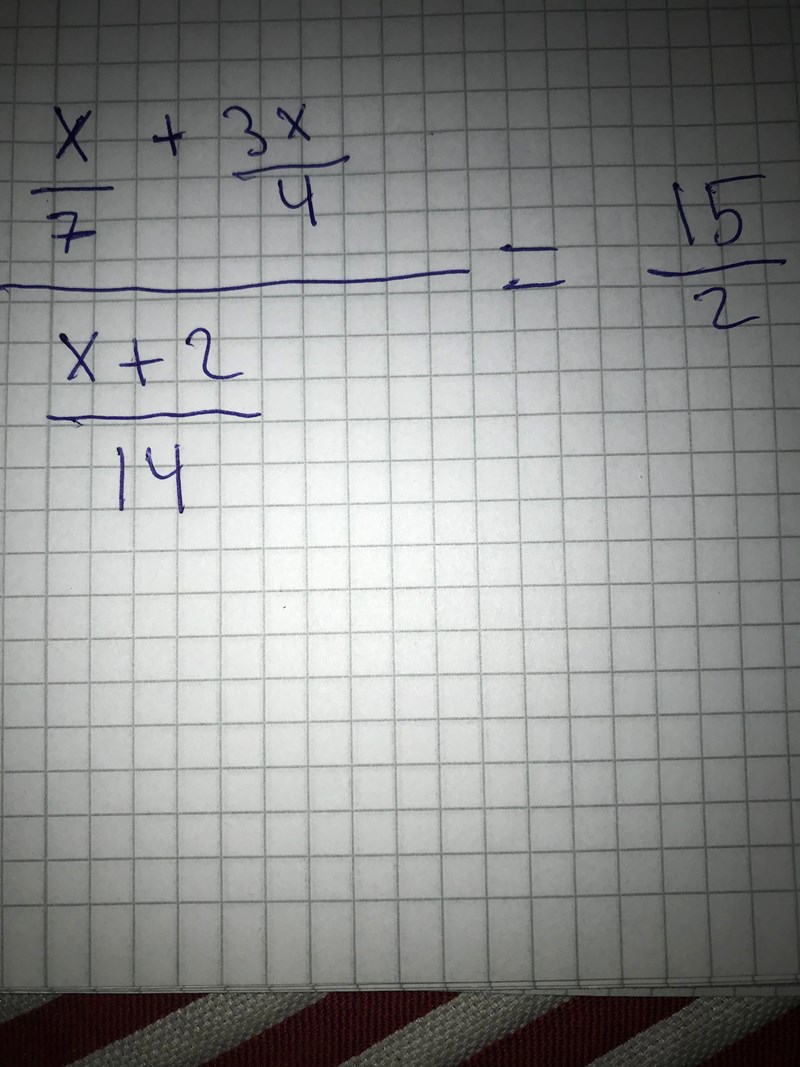 x/7 + 3x/4
x + 2
14
= 15/2